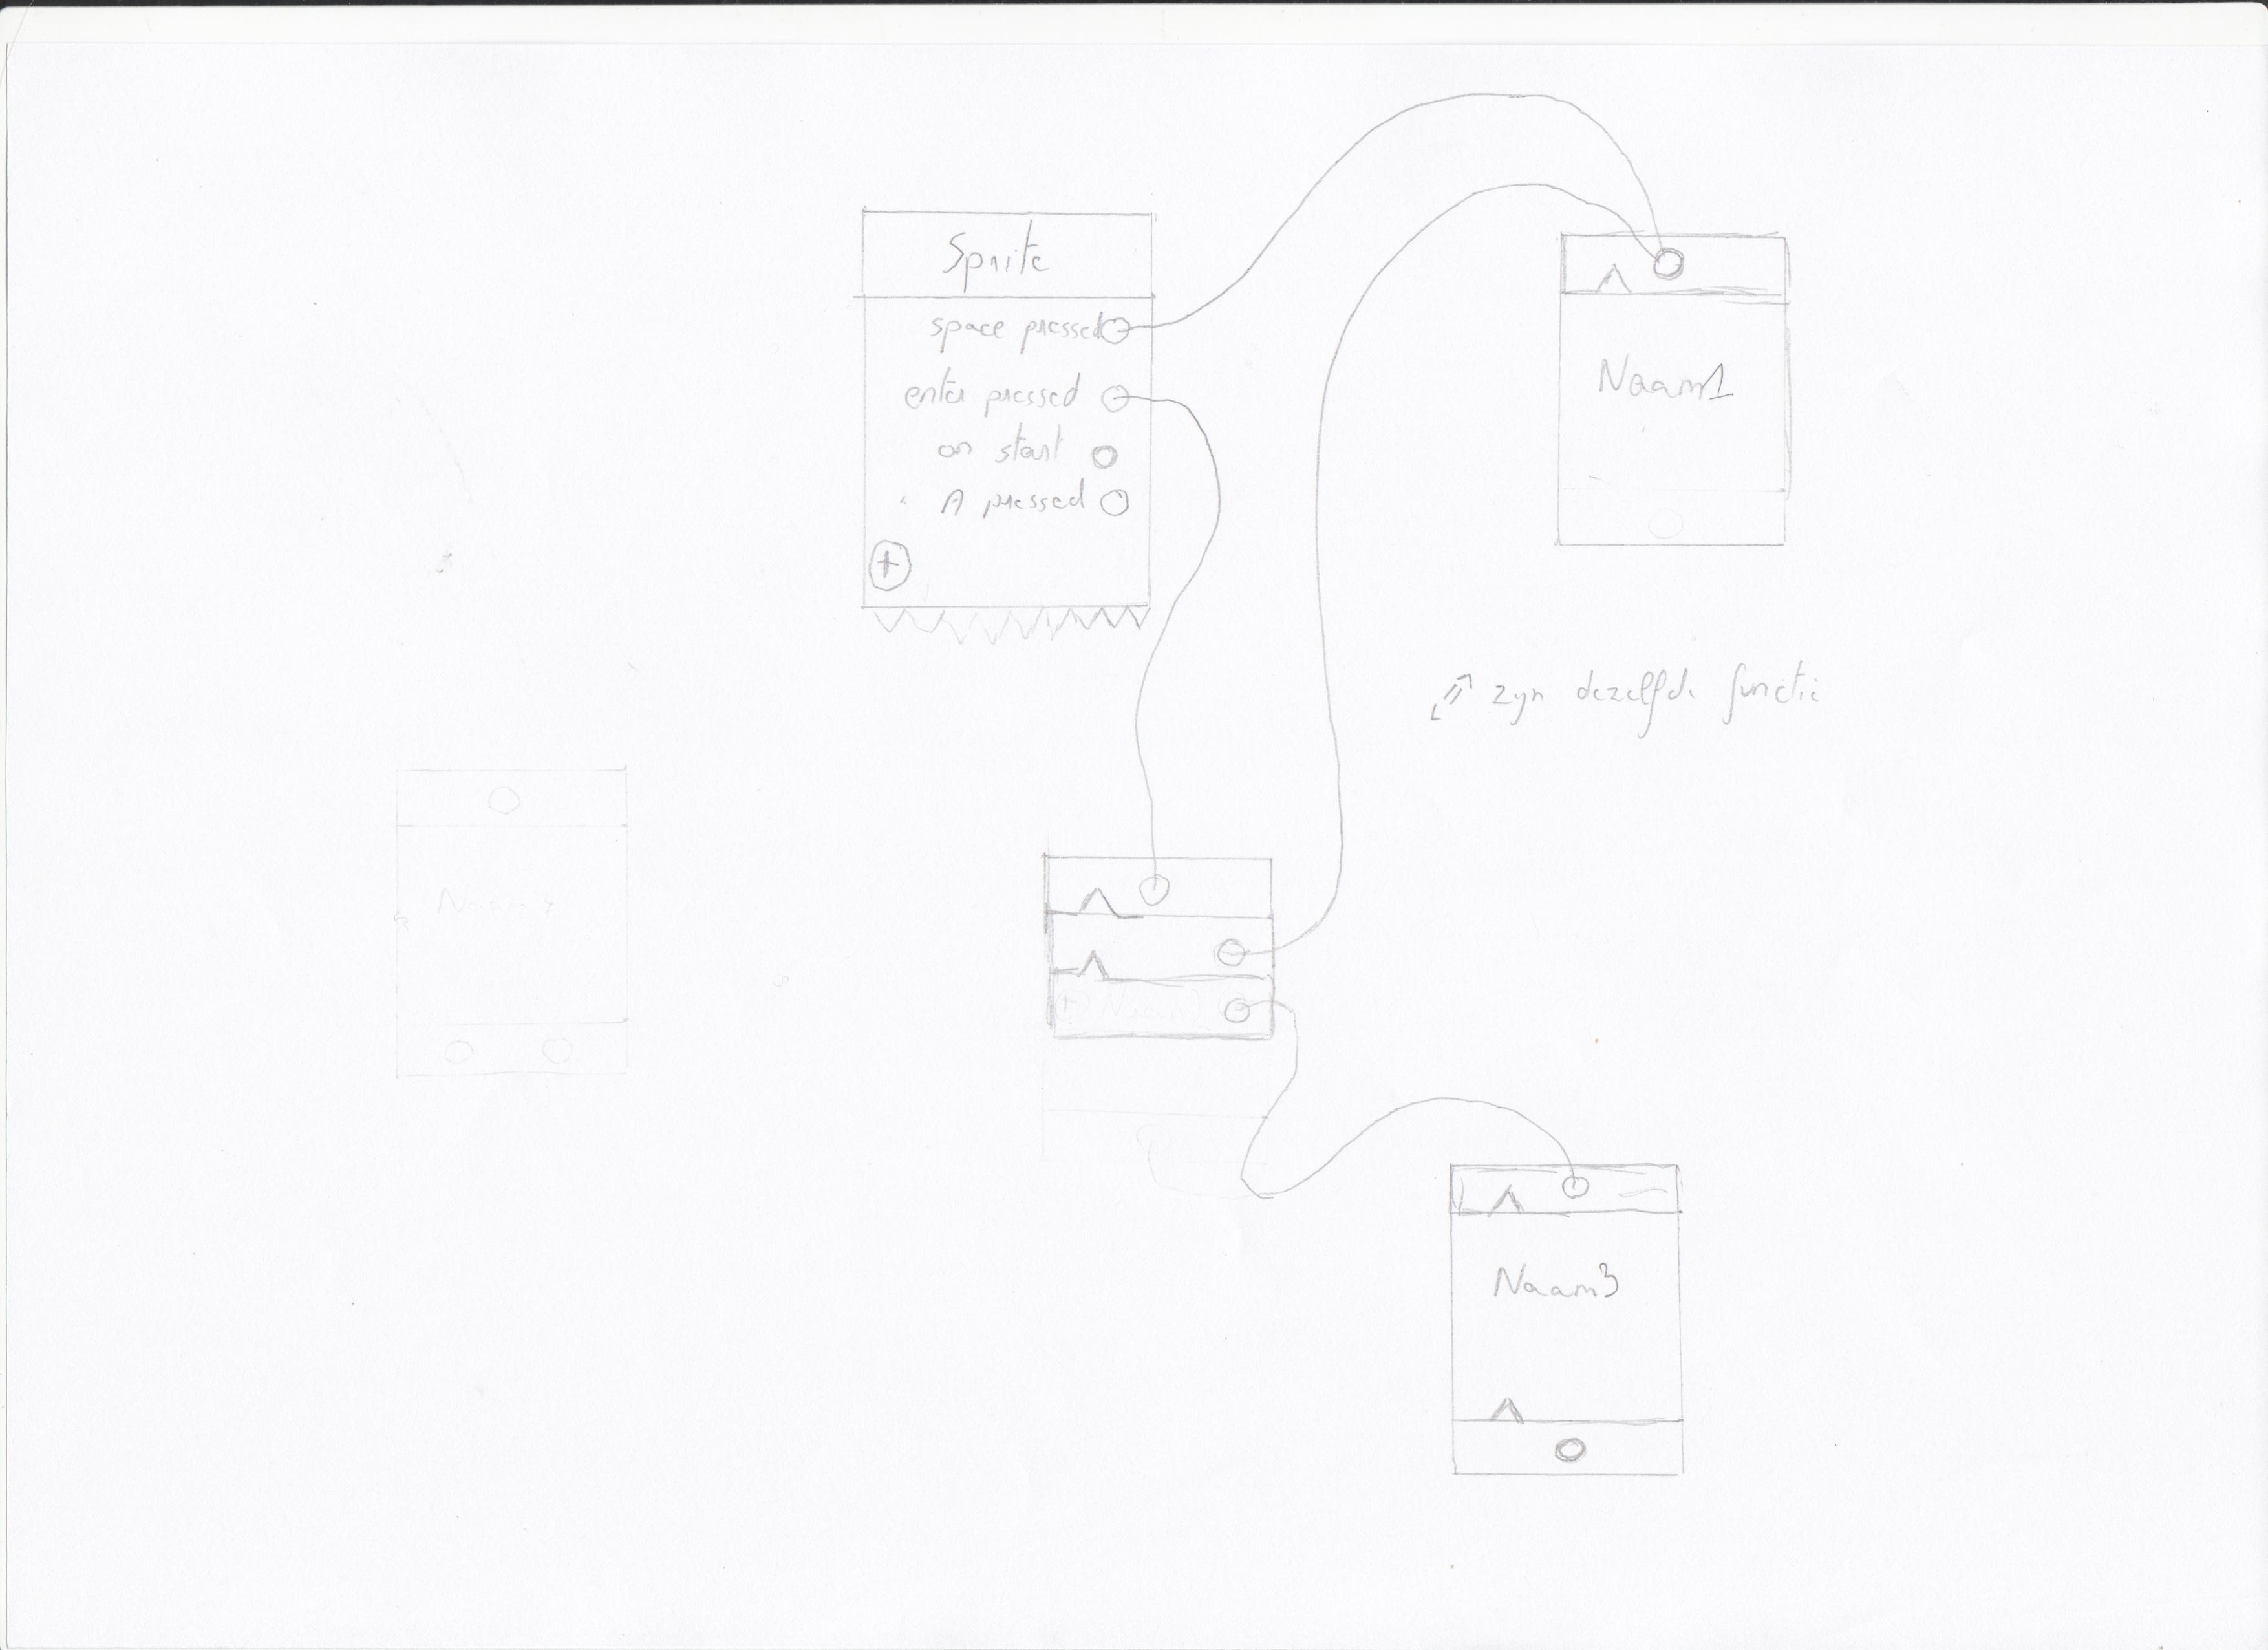 Sprite
space pressed
enter pressed
on start
A pressed
+
Naam1
zyn dezelfde functie
Naam3